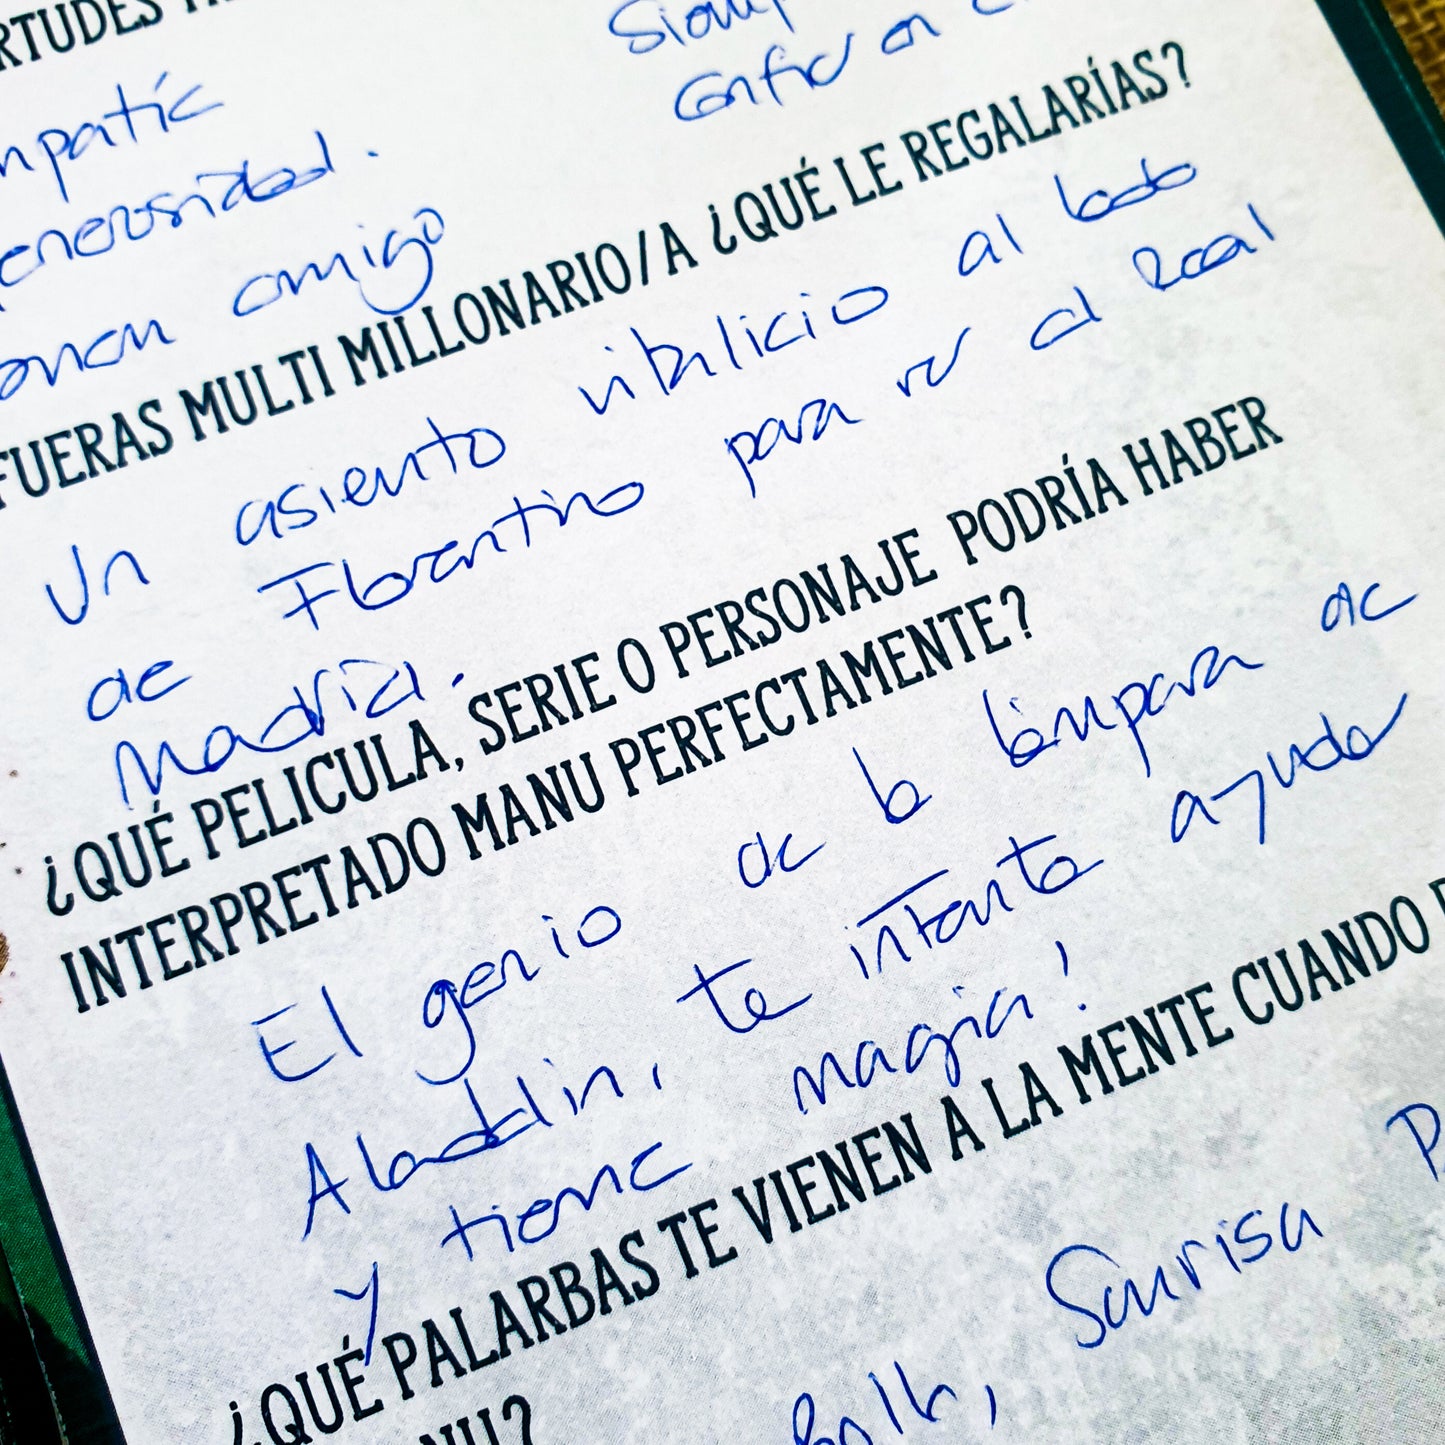 RTUDES
Siemp
mpatic
Confia en
enerosidad.
amigo
FUERAS MULTI MILLONARIO/A ¿QUÉ LE REGALARÍAS?
Un asiento vitalicio al lado
de Florentino para ver al Real
Madrid.
¿QUÉ PELICULA, SERIE O PERSONAJE PODRÍA HABER
INTERPRETADO MANU PERFECTAMENTE?
El genio de la lámpara de
Aladdin, te intenta ayudar
y tiene magia!
¿QUÉ PALARBAS TE VIENEN A LA MENTE CUANDO
Sonrisa P
NU?